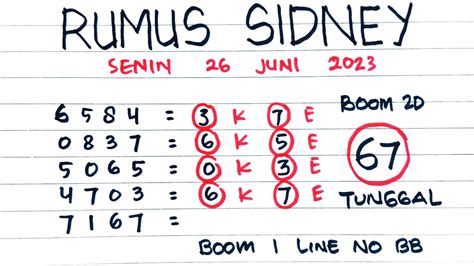 RUMUS SIDNEY
SENIN 26 JUNI 2023
6584 = 3 K 7 E
0837 = 6 K 5 E
5065 = 0 K 3 E
4703 = 6 K 7 E
7167 =
BOOM 2D
67
TUNGGAL
BOOM 1 LINE NO BB